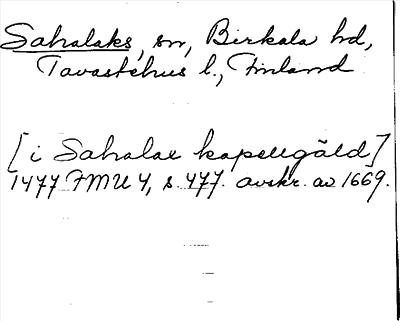 Sahalaks, sn, Birkala hd,
Tavastehus l., Finland
[i Sahalax kapellgäld]
1477 FMU 4, s. 477. avskr. av 1669.